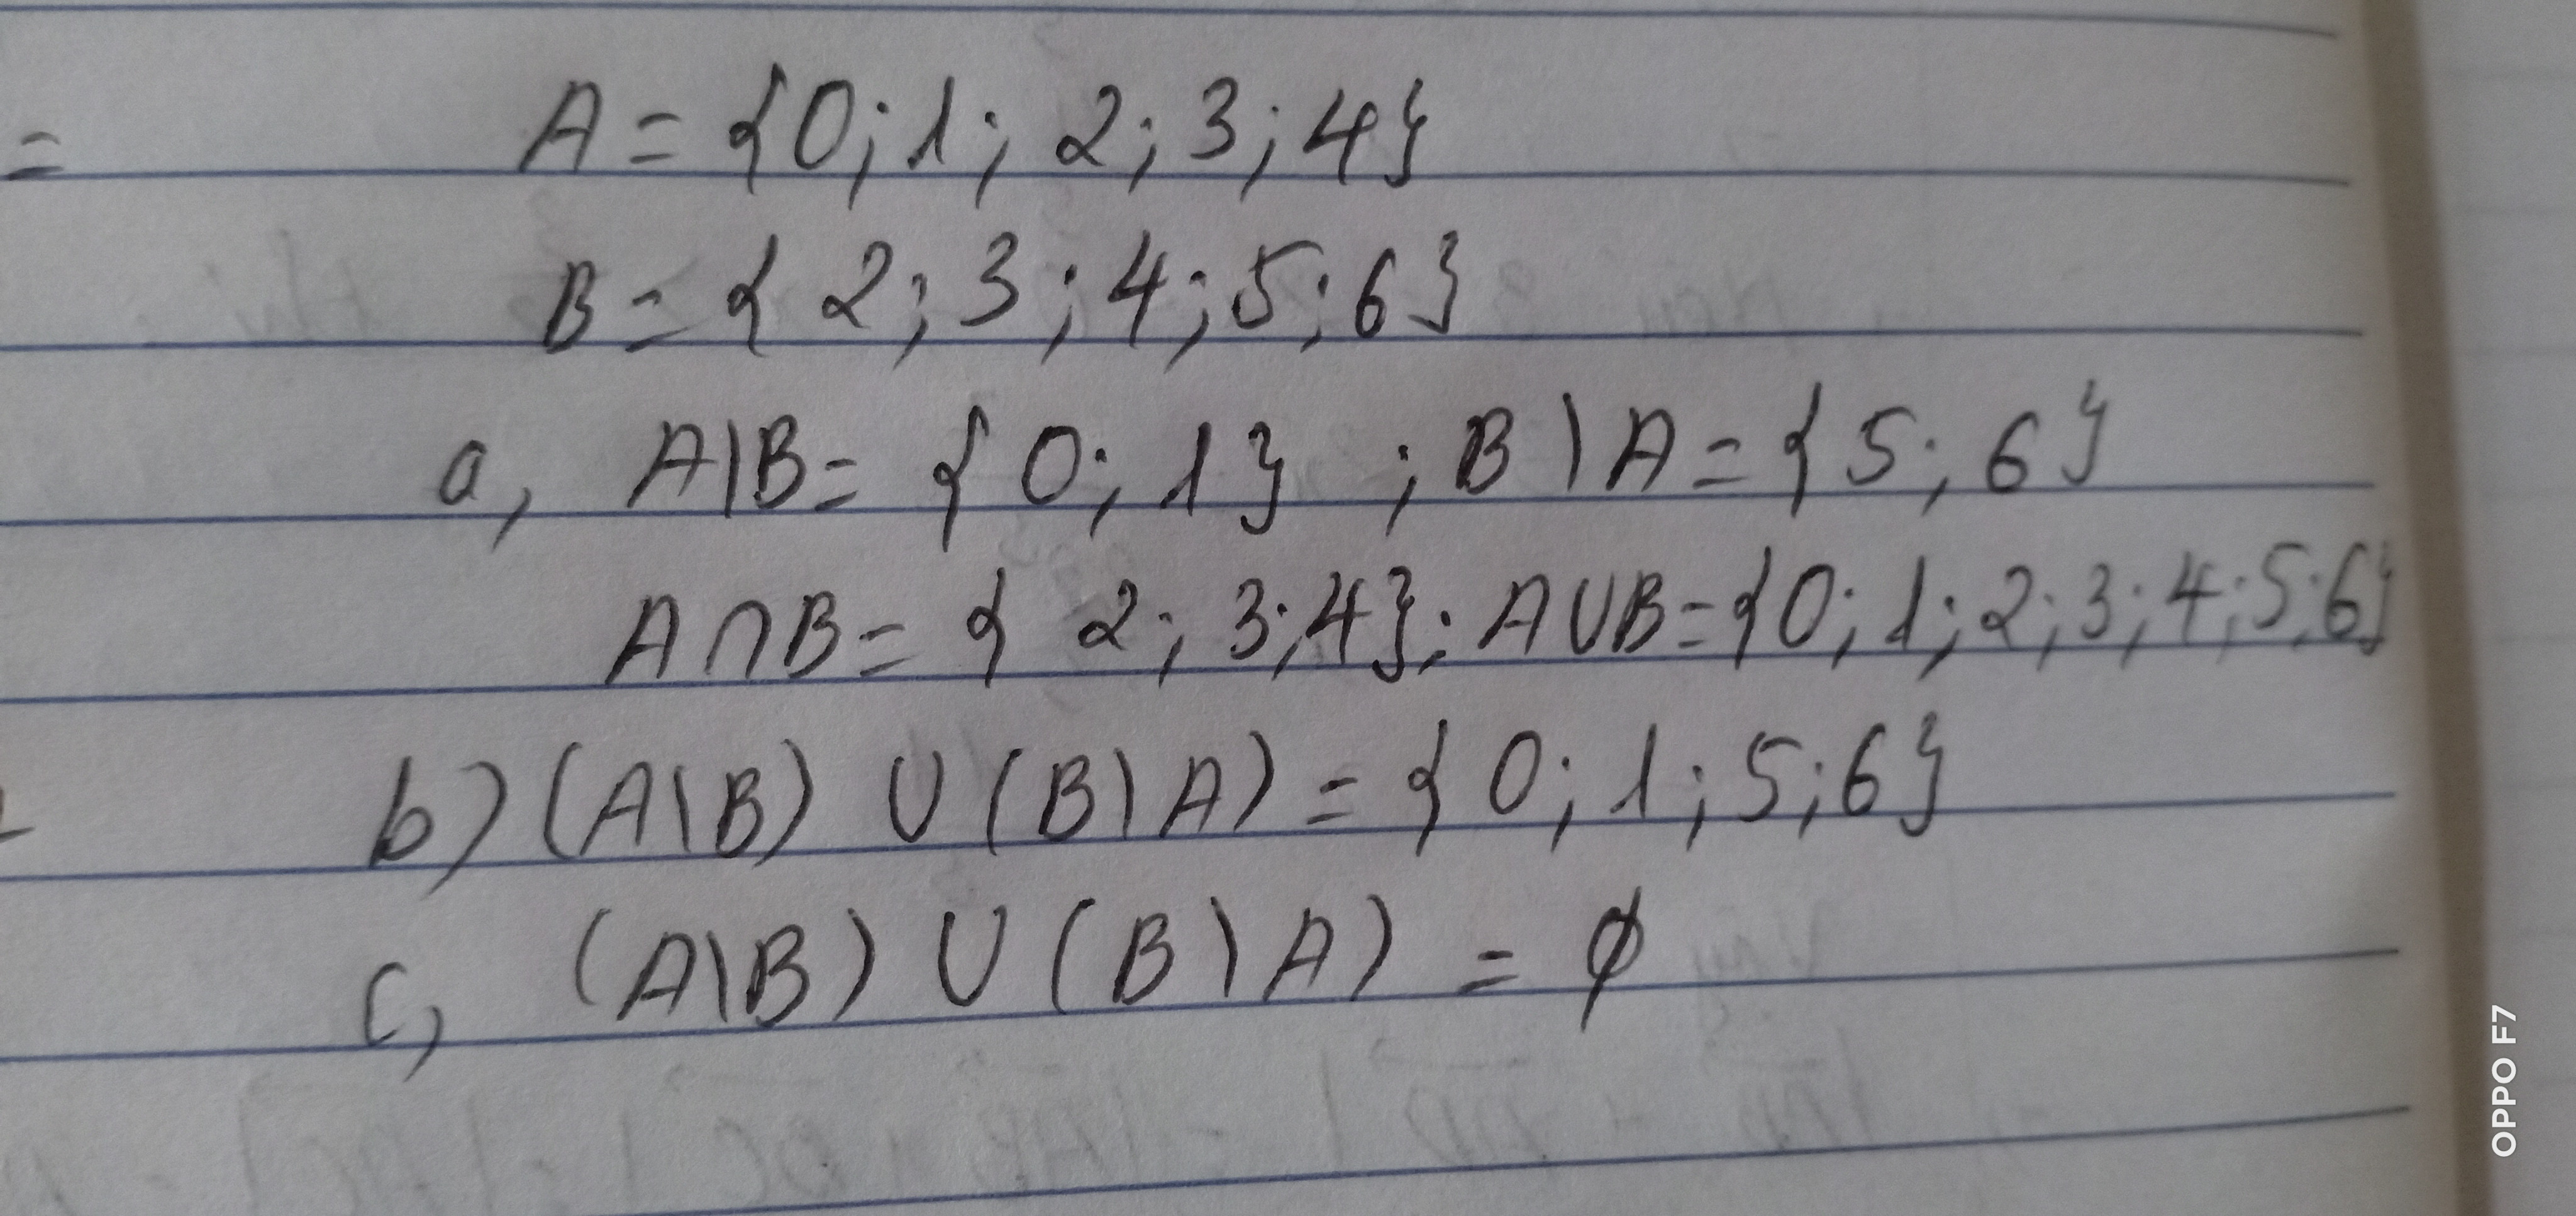 =
A = {0; 1; 2; 3; 4}
B = { 2; 3; 4; 5; 6}
a, A\B = { 0; 1} ; B \ A = { 5; 6}
A∩B = { 2; 3; 4}; A∪B = {0; 1; 2; 3; 4; 5; 6}
b) (A\B) ∪ (B\A) = { 0; 1; 5; 6}
c, (A\B) ∪ (B\A) = ∅
OPPO F7